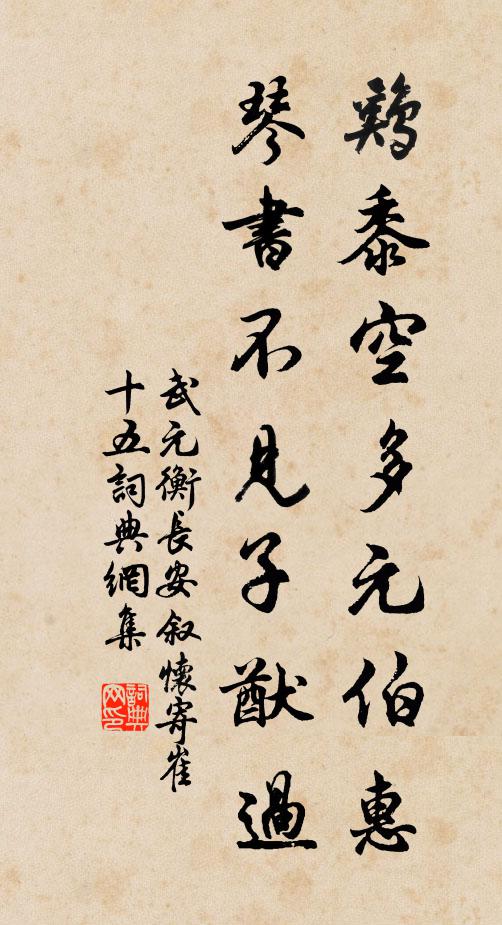 鷄黍空多元伯惠
琴書不見子猷過
武元衡長安叙懷寄崔
十五詞典網集
詞典
网印